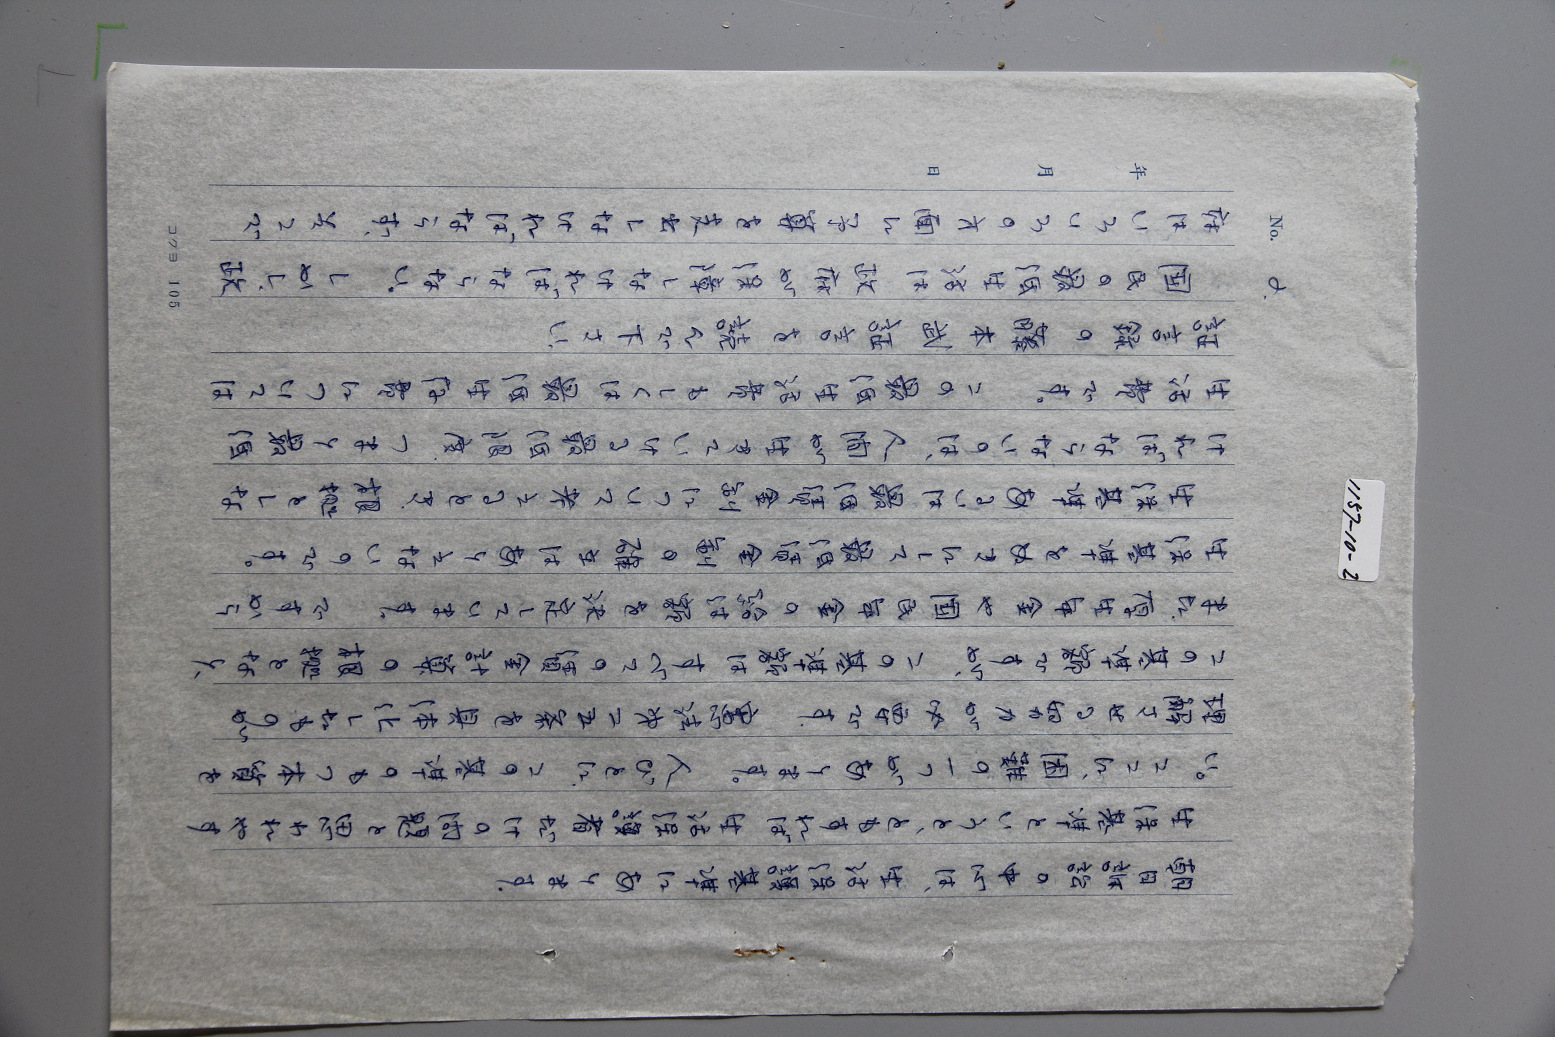 No. 2.
年 月 日
朝日訴訟の中心は、生活保護基準にあります。
生保基準というと、ともすれば生活保護者だけの問題と思われやす
い。ここに困難の一つがあります。人びとに、この基準のもつ本質を
理解させうるか否かが必要です。憲法廿五条を具体化したものが
この基準額ですが、この基準額はすべての賃金計算の根拠となり、
また、厚生年金や国民年金の給付額を決定しています。ですから
生保基準をぬきにして最低賃金制の確立はありえないのです。
生保基準あるいは最低賃金制について考えるとき、根拠としな
ければならないのは、人間が生きていける最低限度、つまり最低
生活費です。この最低生活費もしくは最低生存費については
証言録の藤本武証言を読んで下さい。
国民の最低生活は政府が保障しなければならない。しかし、政
府はいろいろの方面に予算を支出しなければならず、そこで
コクヨ 105
1157-10-2